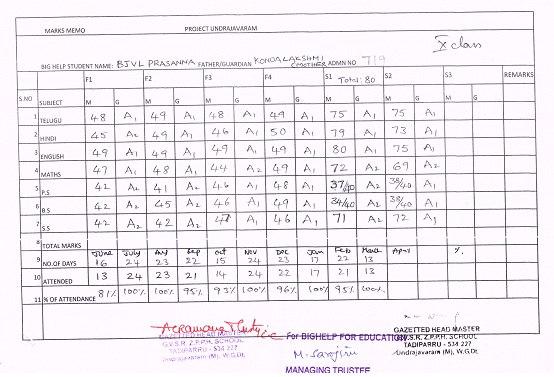 MARKS MEMO PROJECT UNDRAJAVARAM
X class
BIG HELP STUDENT NAME: BJVL PRASANNA FATHER/GUARDIAN KONDALAKSHMI (MOTHER) ADMN NO 719
F1 F2 F3 F4 S1 Total: 80 S2 S3 REMARKS
S.NO SUBJECT M G M G M G M G M G M G M G
1 TELUGU 48 A1 49 A1 48 A1 49 A1 75 A1 75 A1
2 HINDI 45 A2 49 A1 46 A1 50 A1 79 A1 73 A1
3 ENGLISH 49 A1 49 A1 49 A1 49 A1 80 A1 75 A1
4 MATHS 47 A1 48 A1 44 A2 49 A1 72 A1 69 A2
5 P.S 42 A2 41 A2 46 A1 48 A1 37/40 A2 38/40 A1
6 B.S 42 A2 45 A2 46 A1 49 A1 34/40 A2 38/40 A1
7 S.S 42 A2 42 A2 47 A1 46 A1 71 A2 72 A1
8 TOTAL MARKS
June July Aug Sep Oct Nov Dec Jan Feb March April %
9 NO.OF DAYS 16 24 23 22 15 24 23 17 22 13
10 ATTENDED 13 24 23 21 14 24 22 17 21 13
11 % OF ATTENDANCE 81% 100% 100% 95% 93% 100% 96% 100% 95% 100%
GAZETTED HEAD MASTER
G.V.S.R. Z.P.P.H. SCHOOL
TADIPARRU - 534 227
Undrajavaram (M), W.G.Dt.
For BIGHELP FOR EDUCATION
M. Sarojini
MANAGING TRUSTEE
GAZETTED HEAD MASTER
G.V.S.R. Z.P.P.H. SCHOOL
TADIPARRU - 534 227
Undrajavaram (M), W.G.Dt.